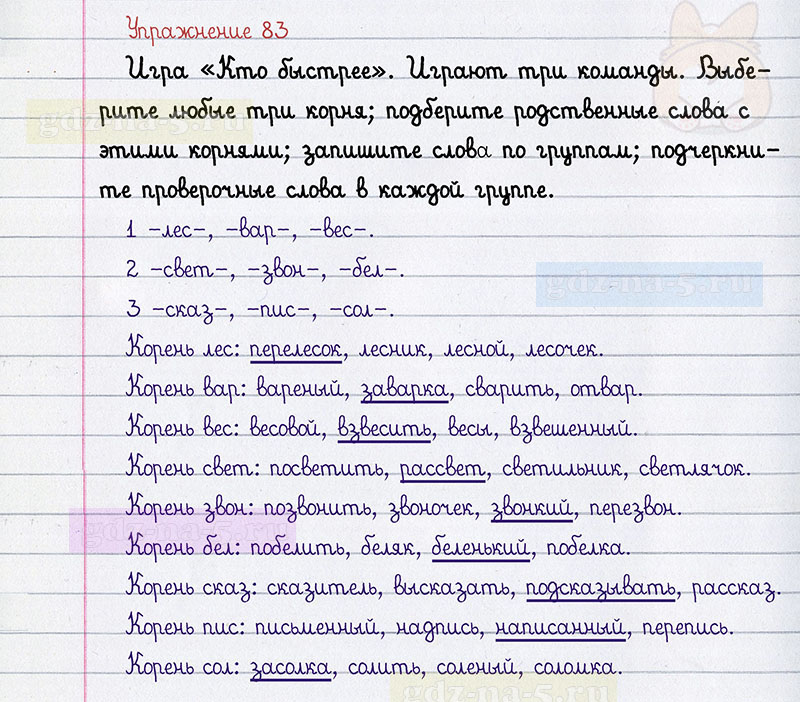 Упражнение 83
Игра «Кто быстрее». Играют три команды. Выбе-
рите любые три корня; подберите родственные слова с
этими корнями; запишите слова по группам; подчеркни-
те проверочные слова в каждой группе.
1 -лес-, -вар-, -вес-.
2 -свет-, -звон-, -бел-.
3 -сказ-, -пис-, -сол-.
Корень лес: перелесок, лесник, лесной, лесочек.
Корень вар: вареный, заварка, сварить, отвар.
Корень вес: весовой, взвесить, весы, взвешенный.
Корень свет: посветить, рассвет, светильник, светлячок.
Корень звон: позвонить, звоночек, звонкий, перезвон.
Корень бел: побелить, беляк, беленький, побелка.
Корень сказ: сказитель, высказать, подсказывать, рассказ.
Корень пис: письменный, надпись, написанный, перепись.
Корень сол: засолка, солить, соленый, соломка.
gdz-na-5.ru
gdz-na-5.ru
gdz-na-5.ru
gdz-na-5.ru